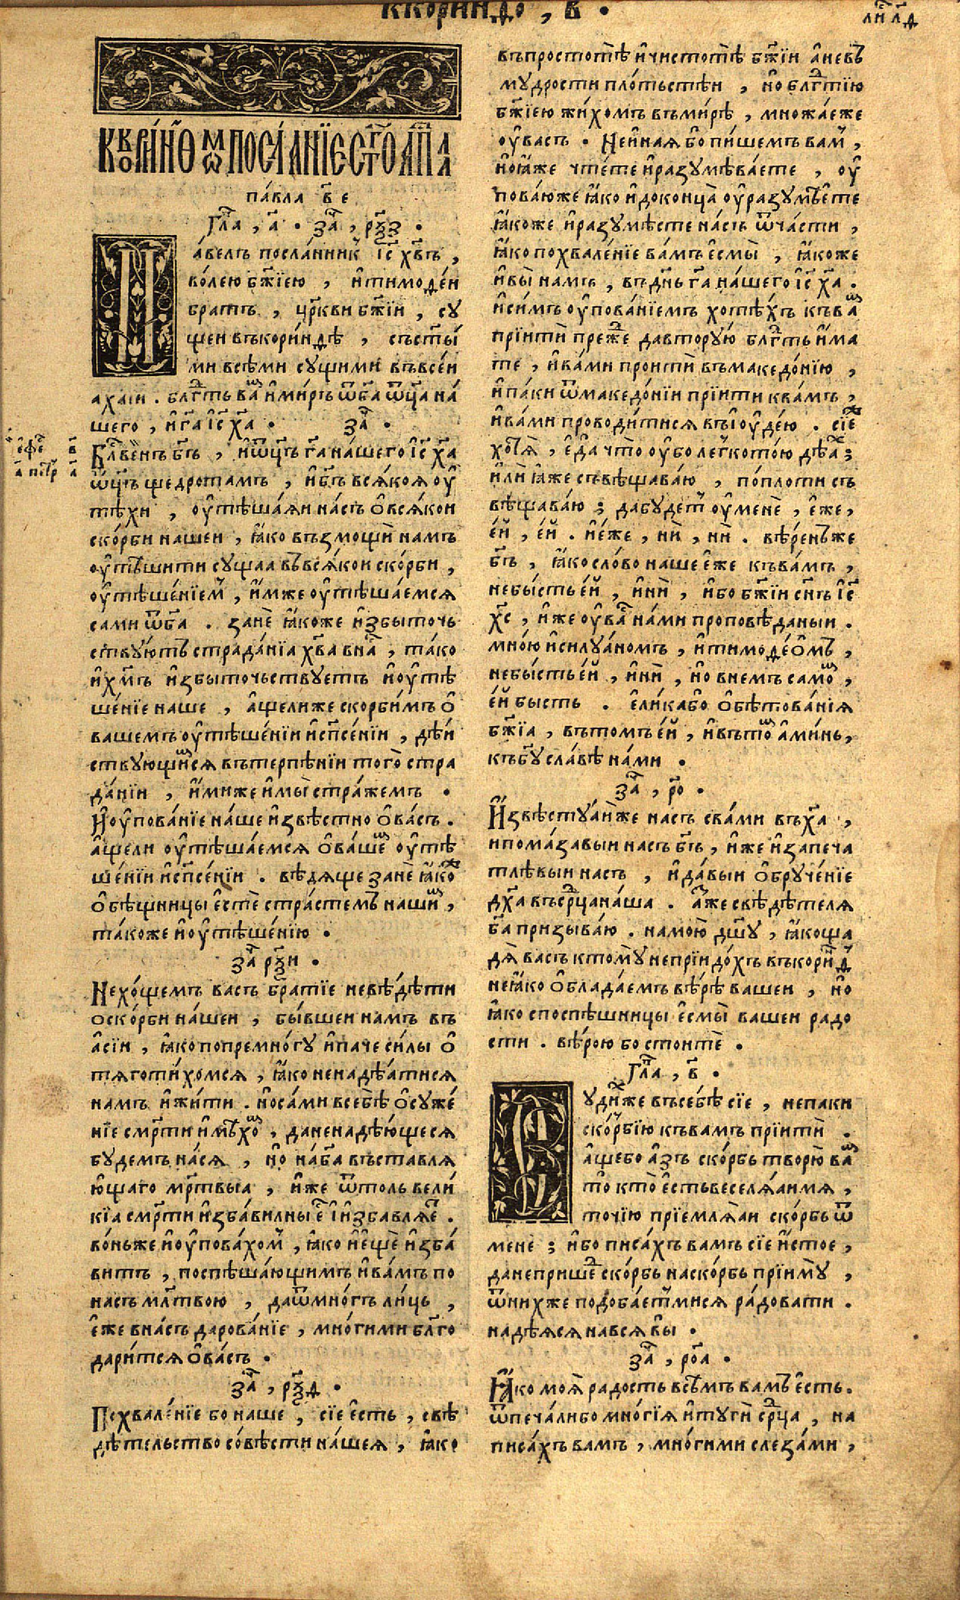 ккоринѳо , в҃ •
къ корі́нѳѡмъ посла́нїе ст҃го ап҃ла
па́вла в҃ е
Гла̀ , а҃ • за̀ , рѯ҃з •
Па́велъ посла́нникъ і҃с хв҃ъ ,
во́лею бж҃їею , и҆тимоѳе́и
братъ , цр҃кви бж҃їи , су́
щеи въкори́нѳѣ , съст҃ы́
ми всѣ́ми су́щими въвсе́и
аха́іи . блгⷣть ва́мъ и҆ми́ръ ѿб҃а ѿц҃а на́
шего , и҆г҃а і҃с х҃а • за̀ •
Бл҃ве́нъ бг҃ъ , и҆ѿц҃ъ г҃а на́шего і҃с х҃а
ѿц҃ъ щедро́тамъ , и҆бг҃ъ вся́коя оу҆
тѣ́хи , оу҆тѣша́яи на́съ ѡ҆вся́кои
ско́рби нашеи , ꙗ҆́ко възмощѝ на́мъ
оу҆тѣ́шити су́щаа въвся́кои ско́рби ,
оу҆тѣше́нїемъ , и҆́мже оу҆тѣша́емся
са́ми ѿб҃а . занѐ ꙗ҆́коже и҆збы́точь
ствую́тъ страда́нїа хв҃а вна́съ , та́ко
и҆х҃мъ и҆збы́точьствуетъ и҆оу҆тѣ
ше́нїе наше , а҆́щелиже скорби́мъ ѡ҆
вашемъ оу҆тѣше́нїи и҆сп҃се́нїи , дѣ́и
ствующи́мся вътерпѣ́нїи того́ стра
да́нїи , и҆́миже и҆мы̀ стра́жемъ •
И҆оу҆пова́нїе на́ше и҆звѣ́стно ѡ҆ва́съ .
а҆́щели оу҆тѣша́емся ѡ҆ва́шемъ оу҆тѣ
ше́нїи и҆сп҃се́нїи . вѣ́дяще занѐ ꙗ҆́коже
ѡ҆́бѣщницы є҆стѐ стра́стемъ на́шимъ ,
та́коже и҆оу҆тѣше́нїю •
за̀ рѯ҃и •
Нехо́щемъ васъ бра́тїе невѣ́дѣти
ѡско́рби на́шеи , бы́вшеи на́мъ въ
а҆сі́и , ꙗ҆́ко попремно́гу и҆па́че си́лы ѡ҆
тяготи́хомся , ꙗ҆́ко ненадѣ́атися
на́мъ и҆жи́ти . но са́ми всебѣ̀ ѡ҆суже́
нїе сме́рти и҆мѣ́хомъ , да ненадѣ́ющеся
бу́демъ на́ся , но̀ на́б҃а въставля́
ющаго ме́ртвыа , и҆́же ѿто́ль вели́
кїа сме́рти и҆зба́вилны̀ є҆́сть и҆ и҆збавля́етъ .
во́ньже и҆оу҆пова́хомъ , ꙗ҆́ко и҆є҆щѐ и҆зба́
витъ , поспѣша́ющимъ и҆ва́мъ по
на́съ мл҃твою , даѿмно́гъ ли́цъ ,
є҆́же вна́съ дарова́нїе , мно́гими бл҃го
дари́тся ѡ҆ва́съ •
за̀ , рѯ҃ѳ •
Похвале́нїе бо на́ше , сїѐ є҆́сть , свѣ
дѣ́тельство со́вѣсти на́шея , ꙗ҆́ко
въпростотѣ̀ и҆чистотѣ̀ бж҃їи а҆невъ
му́дрости пло́тьстѣи , но̀ блгⷣтїю
бж҃їею жи́хомъ въми́рѣ , мно́жаеже
оу҆ва́съ • Неи҆́ная бо пи́шемъ ва́мъ ,
но ꙗ҆̀же чте́те и҆разумѣва́ете , оу҆
пова́юже ꙗ҆́ко и҆доконца̀ оу҆разумѣ́ете
ꙗ҆́коже и҆разумѣ́сте на́съ ѿча́сти ,
ꙗ҆́ко похвале́нїе ва́мъ є҆смы̀ , ꙗ҆́коже
и҆вы̀ на́мъ , въдн҃ь г҃а на́шего і҃с х҃а .
и҆си́мъ оу҆пова́нїемъ хотѣ́хъ къва́мъ
прїитѝ пре́же , давтору́ю блгⷣть и҆́ма
те , и҆ва́ми проитѝ въмакедо́нїю ,
и҆па́ки ѿмакедо́нїи прїитѝ ква́мъ ,
и҆ва́ми проводи́тися въїоуде́ю . сїе́же
хотя̀ , є҆да̀ что̀ оу҆́бо легкото́ю дѣ́ахъ ;
и҆лѝ ꙗ҆̀же съвѣщава́ю , попло́ти съ
вѣщава́ю ; дабу́детъ оу҆менѐ , є҆́же ,
є҆́й , є҆́й . и҆е҆́же , нѝ , нѝ . вѣ́ренъже
бг҃ъ , ꙗ҆́ко сло́во наше є҆́же къва́мъ ,
небы́сть є҆́й , и҆нѝ , и҆́бо бж҃їи сн҃ъ і҃с
х҃с , и҆́же оу҆ва́съ на́ми проповѣ́даныи .
мно́ю и҆силуа́номъ , и҆тимоѳе́омъ ,
небы́сть є҆́й , и҆нѝ , но̀ внемъ само́мъ ,
є҆́й бысть . є҆ли́ка бо ѡ҆бѣтова́нїя
бж҃їа , вътомъ є҆́й , и҆вътомъ а҆ми́нь ,
къбг҃у сла́вѣ на́ми •
за̀ , ро҃ •
И҆звѣ́стуаи́же на́съ сва́ми въх҃а ,
и҆пома́завыи на́съ бг҃ъ , и҆́же и҆запеча
тлѣ́выи на́съ , и҆да́выи ѡ҆бруче́нїе
дх҃а въсрⷣца на́ша . а҆́зже свѣдѣ́теля
б҃а призыва́ю . намою̀ дш҃у , ꙗ҆́ко ща
дя̀ ва́съ ктому̀ непрїидо́хъ въкори́нѳъ
не ꙗ҆́ко ѡ҆блада́емъ вѣ́рѣ вашеи , но̀
ꙗ҆́ко споспѣ́шницы є҆смы̀ вашеи ра́до
сти . вѣ́рою бо стоитѐ •
Гла̀ , в҃ •
Суди́хже въсебѣ̀ сїѐ , непа́ки
ско́рбїю къва́мъ прїитѝ .
а҆́щебо а҆́зъ ско́рбь творю̀ ва́мъ
то кто̀ є҆́сть веселя́аимя ,
то́чїю прїе́мляаи ско́рбь ѿ
менѐ ; и҆́бо писа́хъ ва́мъ сїѐ и҆́стое ,
данеприше́дъ ско́рбь наско́рбь прїиму̀ ,
ѿни́хже подоба́етъмися ра́довати .
надѣ́яся нався́ вы •
за̀ , роа҃ •
Ꙗ҆́ко моя̀ ра́дость всѣ́мъ ва́мъ є҆́сть .
ѿпеча́либо мно́гїя и҆тугѝ срⷣца , на
писа́хъ ва́мъ , мно́гими слеза́ми ,